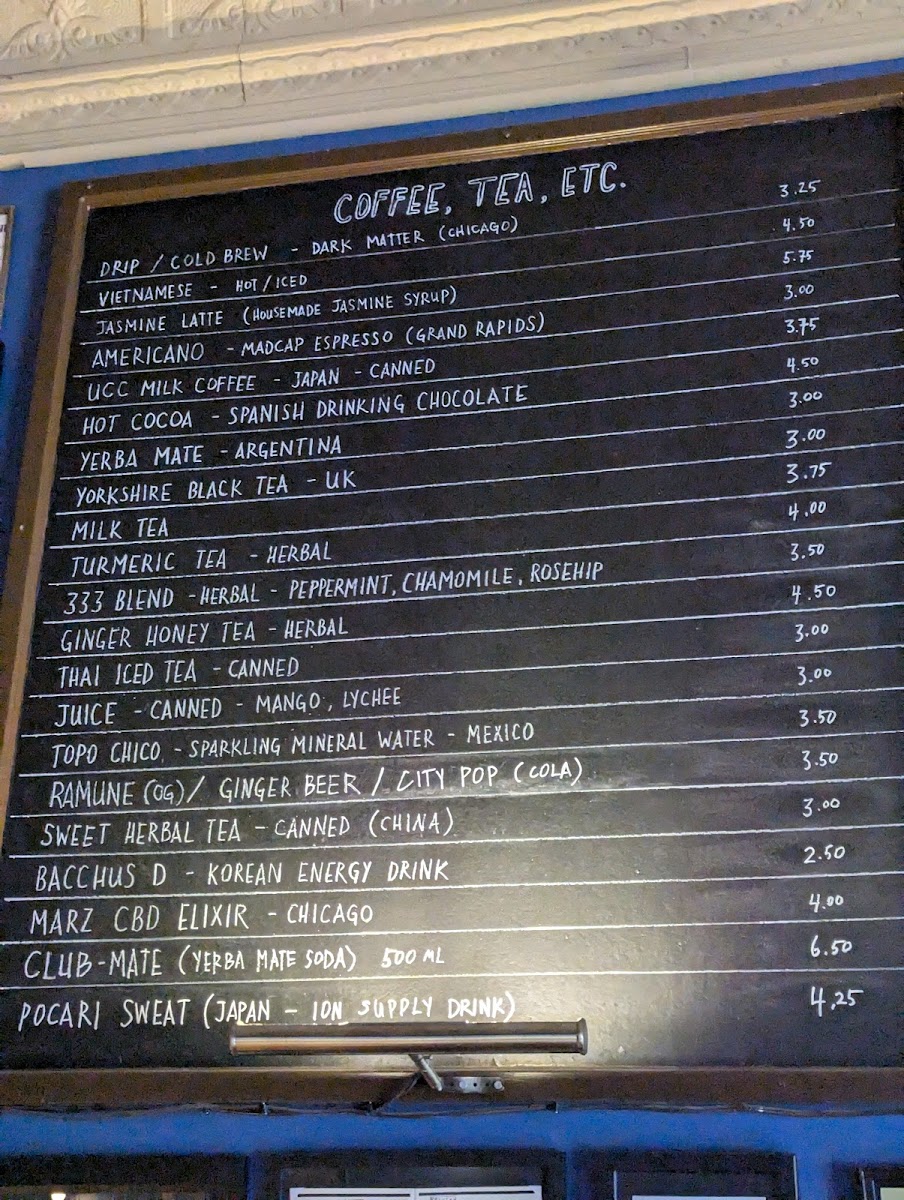 COFFEE, TEA, ETC.
DRIP / COLD BREW - DARK MATTER (CHICAGO) 3.25
VIETNAMESE - HOT/ICED 4.50
JASMINE LATTE (HOUSEMADE JASMINE SYRUP) 5.75
AMERICANO - MADCAP ESPRESSO (GRAND RAPIDS) 3.00
UCC MILK COFFEE - JAPAN - CANNED 3.75
HOT COCOA - SPANISH DRINKING CHOCOLATE 4.50
YERBA MATE - ARGENTINA 3.00
YORKSHIRE BLACK TEA - UK 3.00
MILK TEA 3.75
TURMERIC TEA - HERBAL 4.00
333 BLEND - HERBAL - PEPPERMINT, CHAMOMILE, ROSEHIP 3.50
GINGER HONEY TEA - HERBAL 4.50
THAI ICED TEA - CANNED 3.00
JUICE - CANNED - MANGO, LYCHEE 3.00
TOPO CHICO - SPARKLING MINERAL WATER - MEXICO 3.50
RAMUNE (OG) / GINGER BEER / CITY POP (COLA) 3.50
SWEET HERBAL TEA - CANNED (CHINA) 3.00
BACCHUS D - KOREAN ENERGY DRINK 2.50
MARZ CBD ELIXIR - CHICAGO 4.00
CLUB-MATE (YERBA MATE SODA) 500 ML 6.50
POCARI SWEAT (JAPAN - ION SUPPLY DRINK) 4.25